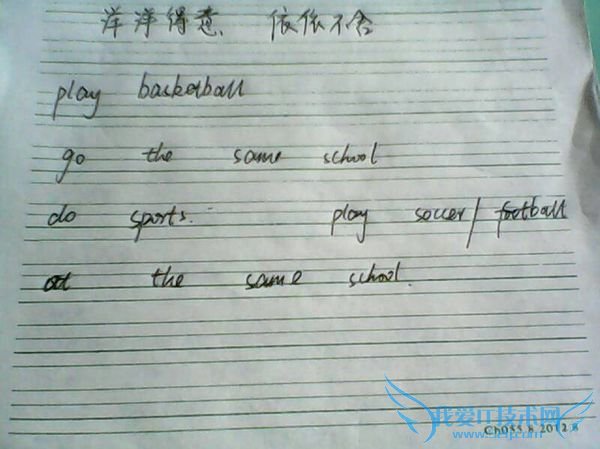 洋洋得意、 依依不舍
play backetball
go the same school
do sports. play soccer/football
at the same school.
我爱IT技术网
Ch055.8.2012.8